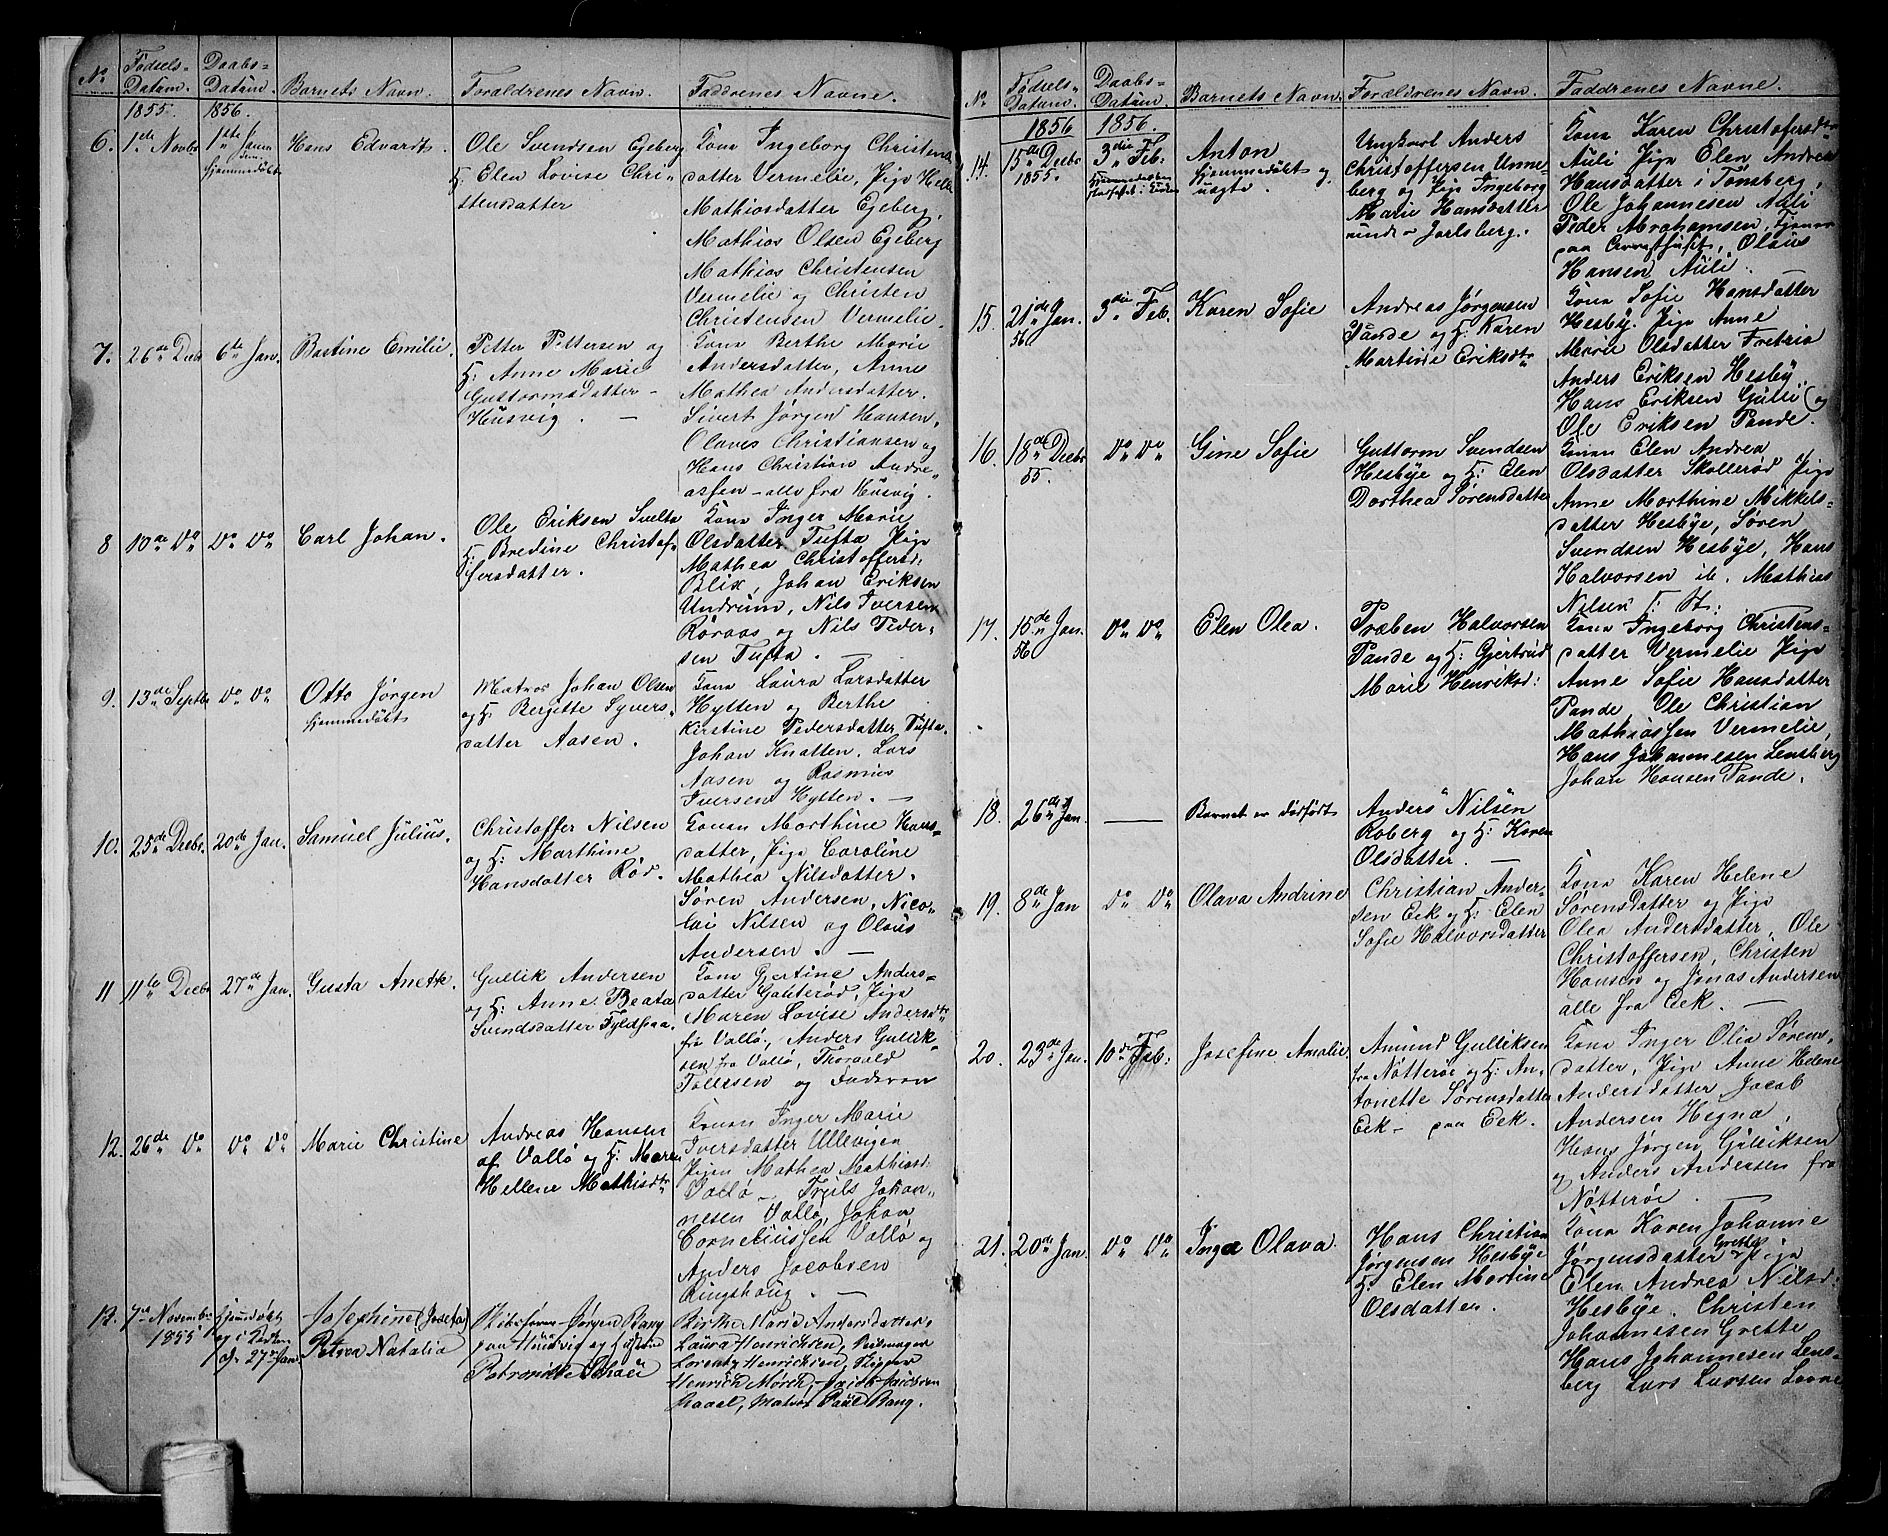 No
Fødsels-
Datum.
Daabs-
Datum.
Barnets Navn.
Forældrenes Navn.
Faddrenes Navne.
1855.
1856.
6.
1ste Novbr
1ste Janu
hjemmedøbt
Hans Edvardt.
Ole Svendsen Egeberg
H: Elen Lovise Chri-
stensdatter
Kona Ingeborg Christens
datter Vermelie, Pige Helle
Mathiasdatter Egeberg,
Mathias Olsen Egeberg
Mathias Christensen
Vermelie og Christen
Christensen Vermelie.
7.
26de Decbr
6te Jan.
Bastine Emilie.
Petter Pettersen og
H: Anne Marie
Guttormsdatter -
Husvig. -
Kona Berthe Marie
Andersdatter, Anne
Mathea Andersdatter.
Sivert Jørgen Hansen,
Olaves Christiansen og
Hans Christian Andre-
assen - alle fra Husvig.
8
10de Do
Do Do
Carl Johan.
Ole Eriksen Svelta
H: Bredine Christof-
fersdatter.
Kona Inger Marie
Olsdatter Tufta Pige
Mathea Christoffersd:
Blix, Johan Eriksen
Undrum, Nils Iversen
Røraas og Nils Peder-
sen Tufta. -
9.
13de Septbr
Do Do
Otto Jørgen
hjemmedøbt
Matros Johan Olsen
og H: Bergitte Syvers-
datter Aasen.
Kona Laura Larsdatter
Hytten og Berthe
Kirstine Pedersdatter Tufta.
Johan Knatten. Lars
Aasen og Rasmus
Iversen Hytten. -
10.
25de Decbr.
20de Jan.
Samuel Julius.
Christoffer Nilsen
og H: Marthine
Hansdatter Rød.
Konan Morthine Hans-
datter, Pige Caroline
Mathea Nilsdatter.
Søren Andersen, Nico-
lai Nilsen og Olaus
Andersen. -
11
11te Decbr
27de Jan.
Gusta Anette.
Gullik Andersen
og H: Anne Beata
Svendsdatter Fyldpaa.
Kona Gjertine Anders-
datter Gauterød, Pige
Maren Lovise Andersdtr
fra Vallø, Anders Gullik-
sen fra Vallø, Thorvald
Tollefsen og Faderen
12.
26de Do
Do Do
Marie Christine
Andreas Hansen
af Vallø og H: Maren
Hellene Mathisdtr
Konan Inger Marie
Iversdatter Ullevigen
Pigen Mathea Mathiasd:
Vallø - Trails Johan-
nesen Vallø, Johan
Corneliussen Vallø og
Anders Jacobsen
Ringshoug. -
13.
7de November
1855
hjemdøbt
og i Kirken
27de Jan.
Josephine (Josefa)
Petrea Natalia
Jørgen Bang
paa Huusvig og Hustrue
Petronille Schou
Birthe Marie Andersdatter.
Laura Henrichsen,
Lorentz Henrichsen, Skipper
Henrich Mørch, Jacob Jacobsen
Matros Paul Bang.
No
Fødsels-
Datum.
Daabs-
Datum.
Barnets Navn.
Forældrenes Navn.
Faddrenes Navne.
1856
1856.
14.
15de Decbr
1855.
3die Feb:
Anton
hjemmedøbt og
uægte.
Ungkarl Anders
Christoffersen Unne-
berg og Pige Ingeborg
Marie Hansdatter
under Jarlsberg.
Kona Karen Christofersdtr
Auli Pige Elen Andrea
Hansdatter i Tønsberg,
Ole Johannesen Auli
Peder Abrahamsen, Tjener
paa Arresthuset, Olaus
Hansen Auli.
15.
21de Jan.
56
3die Feb.
Karen Sofie
Andreas Jørgensen
Tande og H: Karen
Martine Eriksdtr
Kona Sofie Hansdatter
Hesby. Pige Anne
Marie Olsdatter Fretria
Anders Eriksen Hesby
Hans Eriksen Guli og
Ole Eriksen Tande.
16.
18de Decbr
55.
Do Do
Gine Sofie
Guttorm Svendsen
Hesbye og H: Elen
Dorthea Sørensdatter
Konan Elen Andrea
Olsdatter Skollerød Pige
Anne Morthine Mikkels-
datter Hesbye, Søren
Svendsen Hesbye, Hans
Halvorsen ib. Mathias
Nilsen
17.
15de Jan.
56
Do Do
Elen Olea.
Præben Halvorsen
Tande og H: Gjertrud
Marie Henriksd:
Kona Ingeborg Christens-
datter Vermelie Pige
Anne Sofie Hansdatter
Tande, Ole Christian
Mathiassen Vermelie,
Hans Johannesen Lensberg
Johan Hansen Tande.
18.
26de Jan
Barnet er dødfødt
Anders Nilsen
Roberg og H: Karen
Olsdatter. -
19.
8de Jan
Do Do
Olava Andrine
Christian Ander-
sen Eek og H: Elen
Sofie Halvorsdatter
Kona Karen Helene
Sørensdatter og Pige
Olea Andersdatter, Ole
Christoffersen, Christen
Hansen og Jonas Andersen
alle fra Eek. -
20.
23de Jan.
10de Feb:
Josefine Amalie.
Amund Gulliksen
fra Nøtterøe og H: An-
tonette Sørensdatter
Eek - paa Eek.
Kona Inger Olia Sørens-
datter, Pige Anne Helene
Andersdatter Jacob
Andersen Hegna,
Hans Jørgen Gulliksen
og Anders Andersen fra
Nøtterøe. -
21.
20de Jan
Do Do
Inga Olava.
Hans Christian
Jørgensen Hesbye
H: Elen Martine
Olsdatter.
Kona Karen Johanne
Jørgensdatter Grette Pige
Elen Andrea Nilsd:
Hesbye. Christen
Johannesen Grette
Hans Johannesen Lens-
berg Lars Larsen Lovne